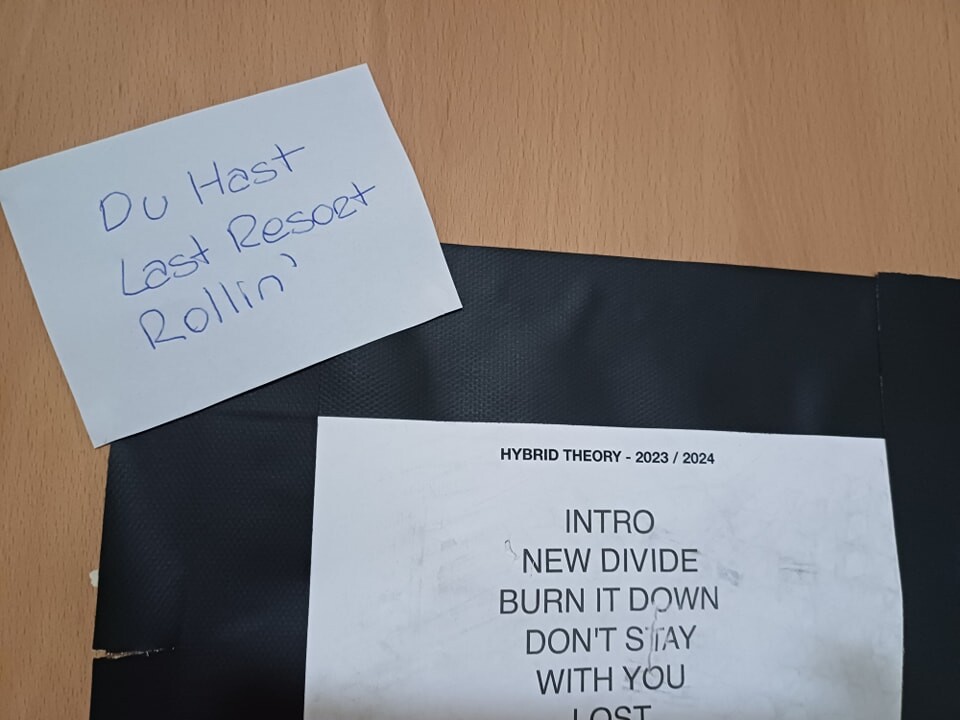 Du Hast
Last Resort
Rollin'
HYBRID THEORY - 2023 / 2024
INTRO
NEW DIVIDE
BURN IT DOWN
DON'T STAY
WITH YOU
LOST